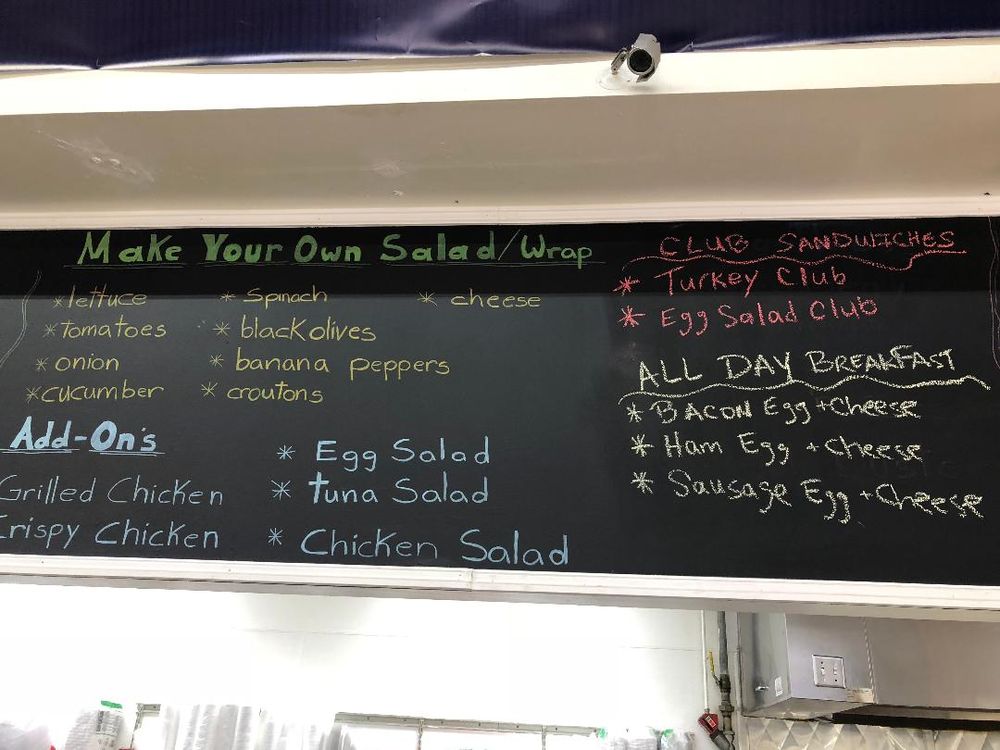 Make Your Own Salad/Wrap
* lettuce * Spinach * cheese
* tomatoes * black olives
* onion * banana peppers
* cucumber * croutons
Add-On's
* Egg Salad
Grilled Chicken * tuna Salad
Crispy Chicken * Chicken Salad
CLUB SANDWICHES
* Turkey Club
* Egg Salad Club
ALL DAY BREAKFAST
* BACON Egg + Cheese
* Ham Egg + Cheese
* Sausage Egg + Cheese